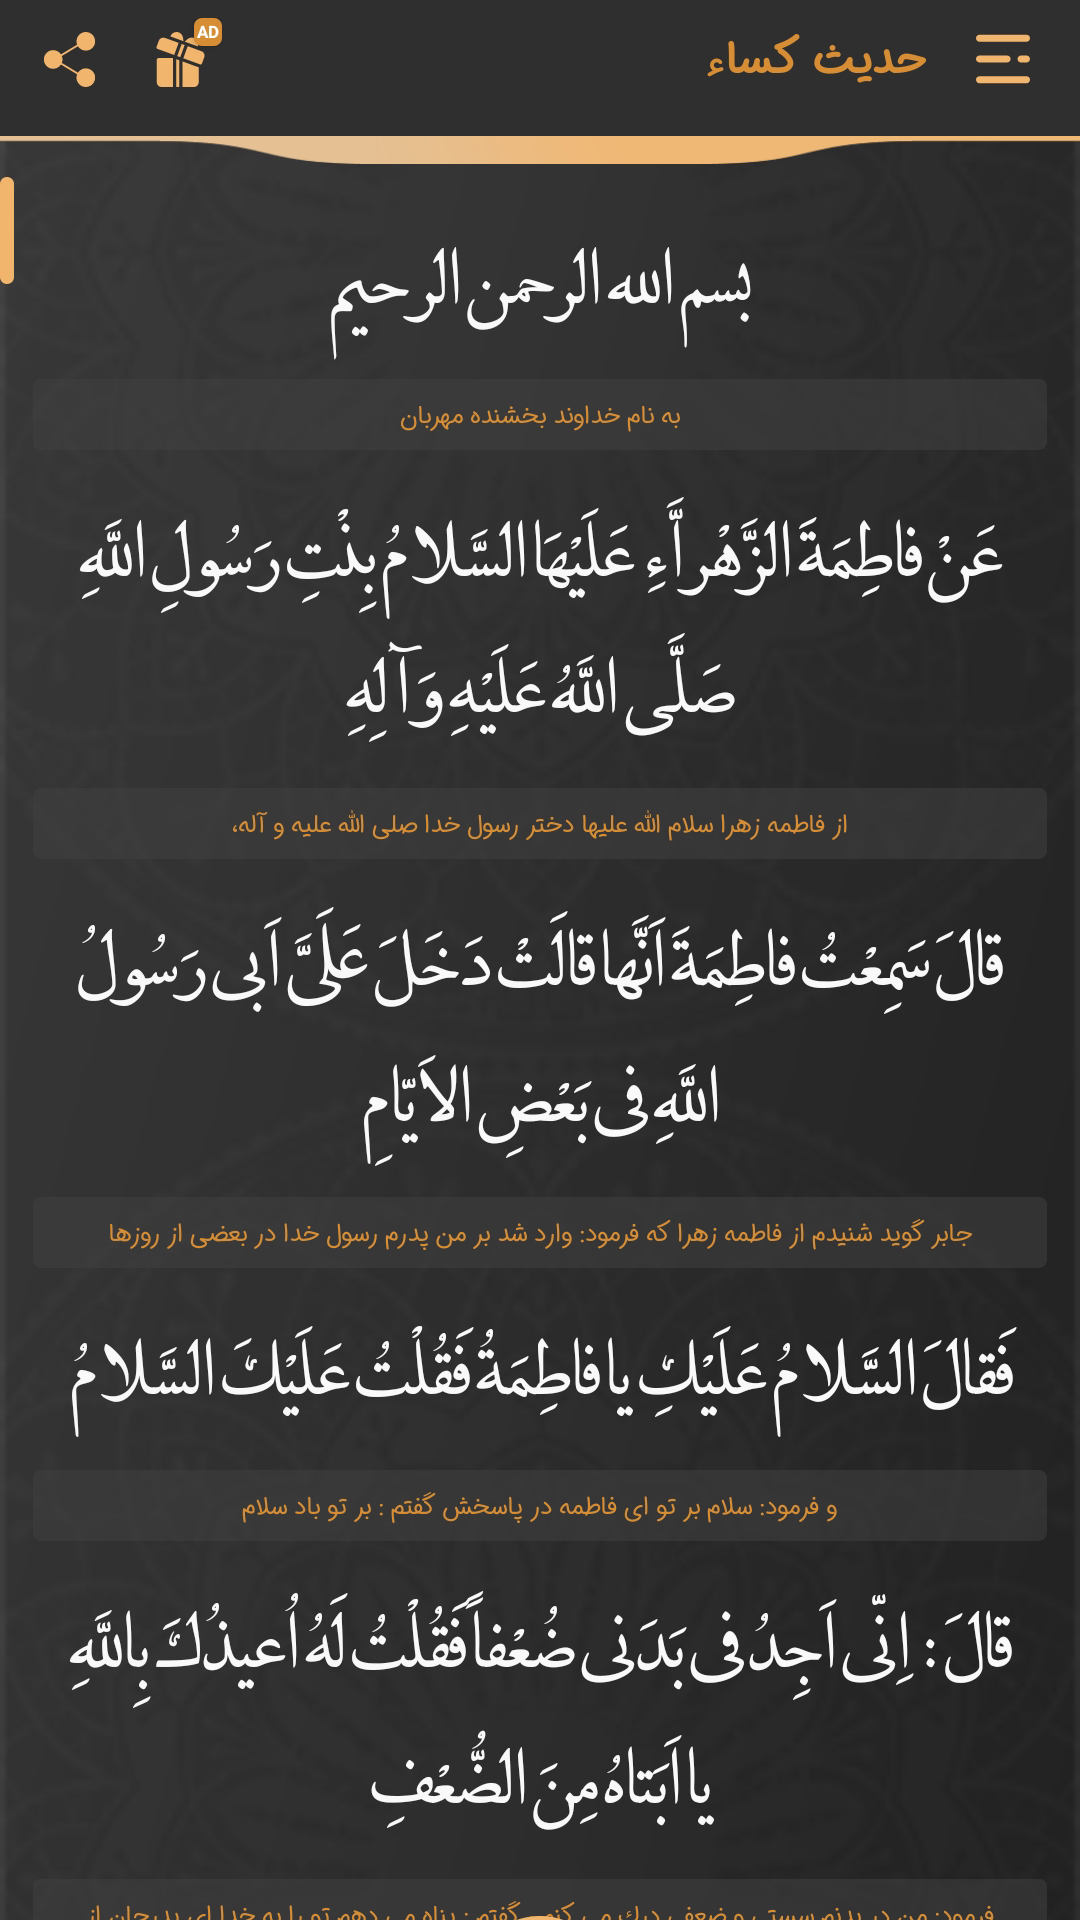 حدیث کساء
AD
بسم الله الرحمن الرحیم
به نام خداوند بخشنده مهربان
عَنْ فاطِمَةَ الزَّهْراَّءِ عَلَيْهَا السَّلامُ بِنْتِ رَسُولِ اللَّهِ
صَلَّى اللَّهُ عَلَيْهِ وَ آلِهِ
از فاطمه زهرا سلام الله عليها دختر رسول خدا صلى الله عليه و آله،
قالَ سَمِعْتُ فاطِمَةَ اَنَّها قالَتْ دَخَلَ عَلَىَّ اَبى رَسُولُ
اللَّهِ فى بَعْضِ الاَيّامِ
جابر گوید شنیدم از فاطمه زهرا که فرمود: وارد شد بر من پدرم رسول خدا در بعضى از روزها
فَقالَ السَّلامُ عَلَيْكِ يا فاطِمَةُ فَقُلْتُ عَلَيْكَ السَّلامُ
و فرمود: سلام بر تو اى فاطمه در پاسخش گفتم : بر تو باد سلام
قالَ : اِنّى اَجِدُ فى بَدَنى ضُعْفاً فَقُلْتُ لَهُ اُعيذُكَ بِاللَّهِ
يا اَبَتاهُ مِنَ الضُّعْفِ
فرمود: من در بدنم سستى و ضعفى درك مى كنم گفتم : پناه مى دهم تو را به خدا اى پدرجان از